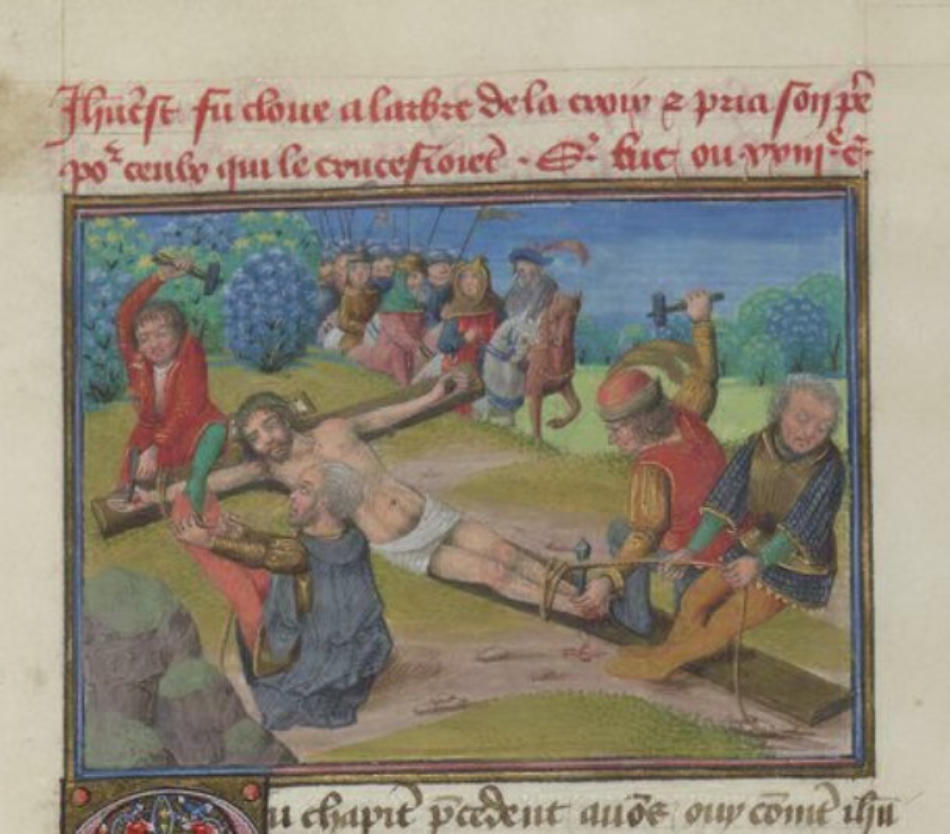 Jhūcst fu cloue a larbre de la croix ⁊ pria son pe̅
po᷑ ceulx qui le crucefioiēt . Sᵗ luc ou xxiijᵉ c̄.
u chapit̄ p̄cedent auōs ouy cōmēt ihū